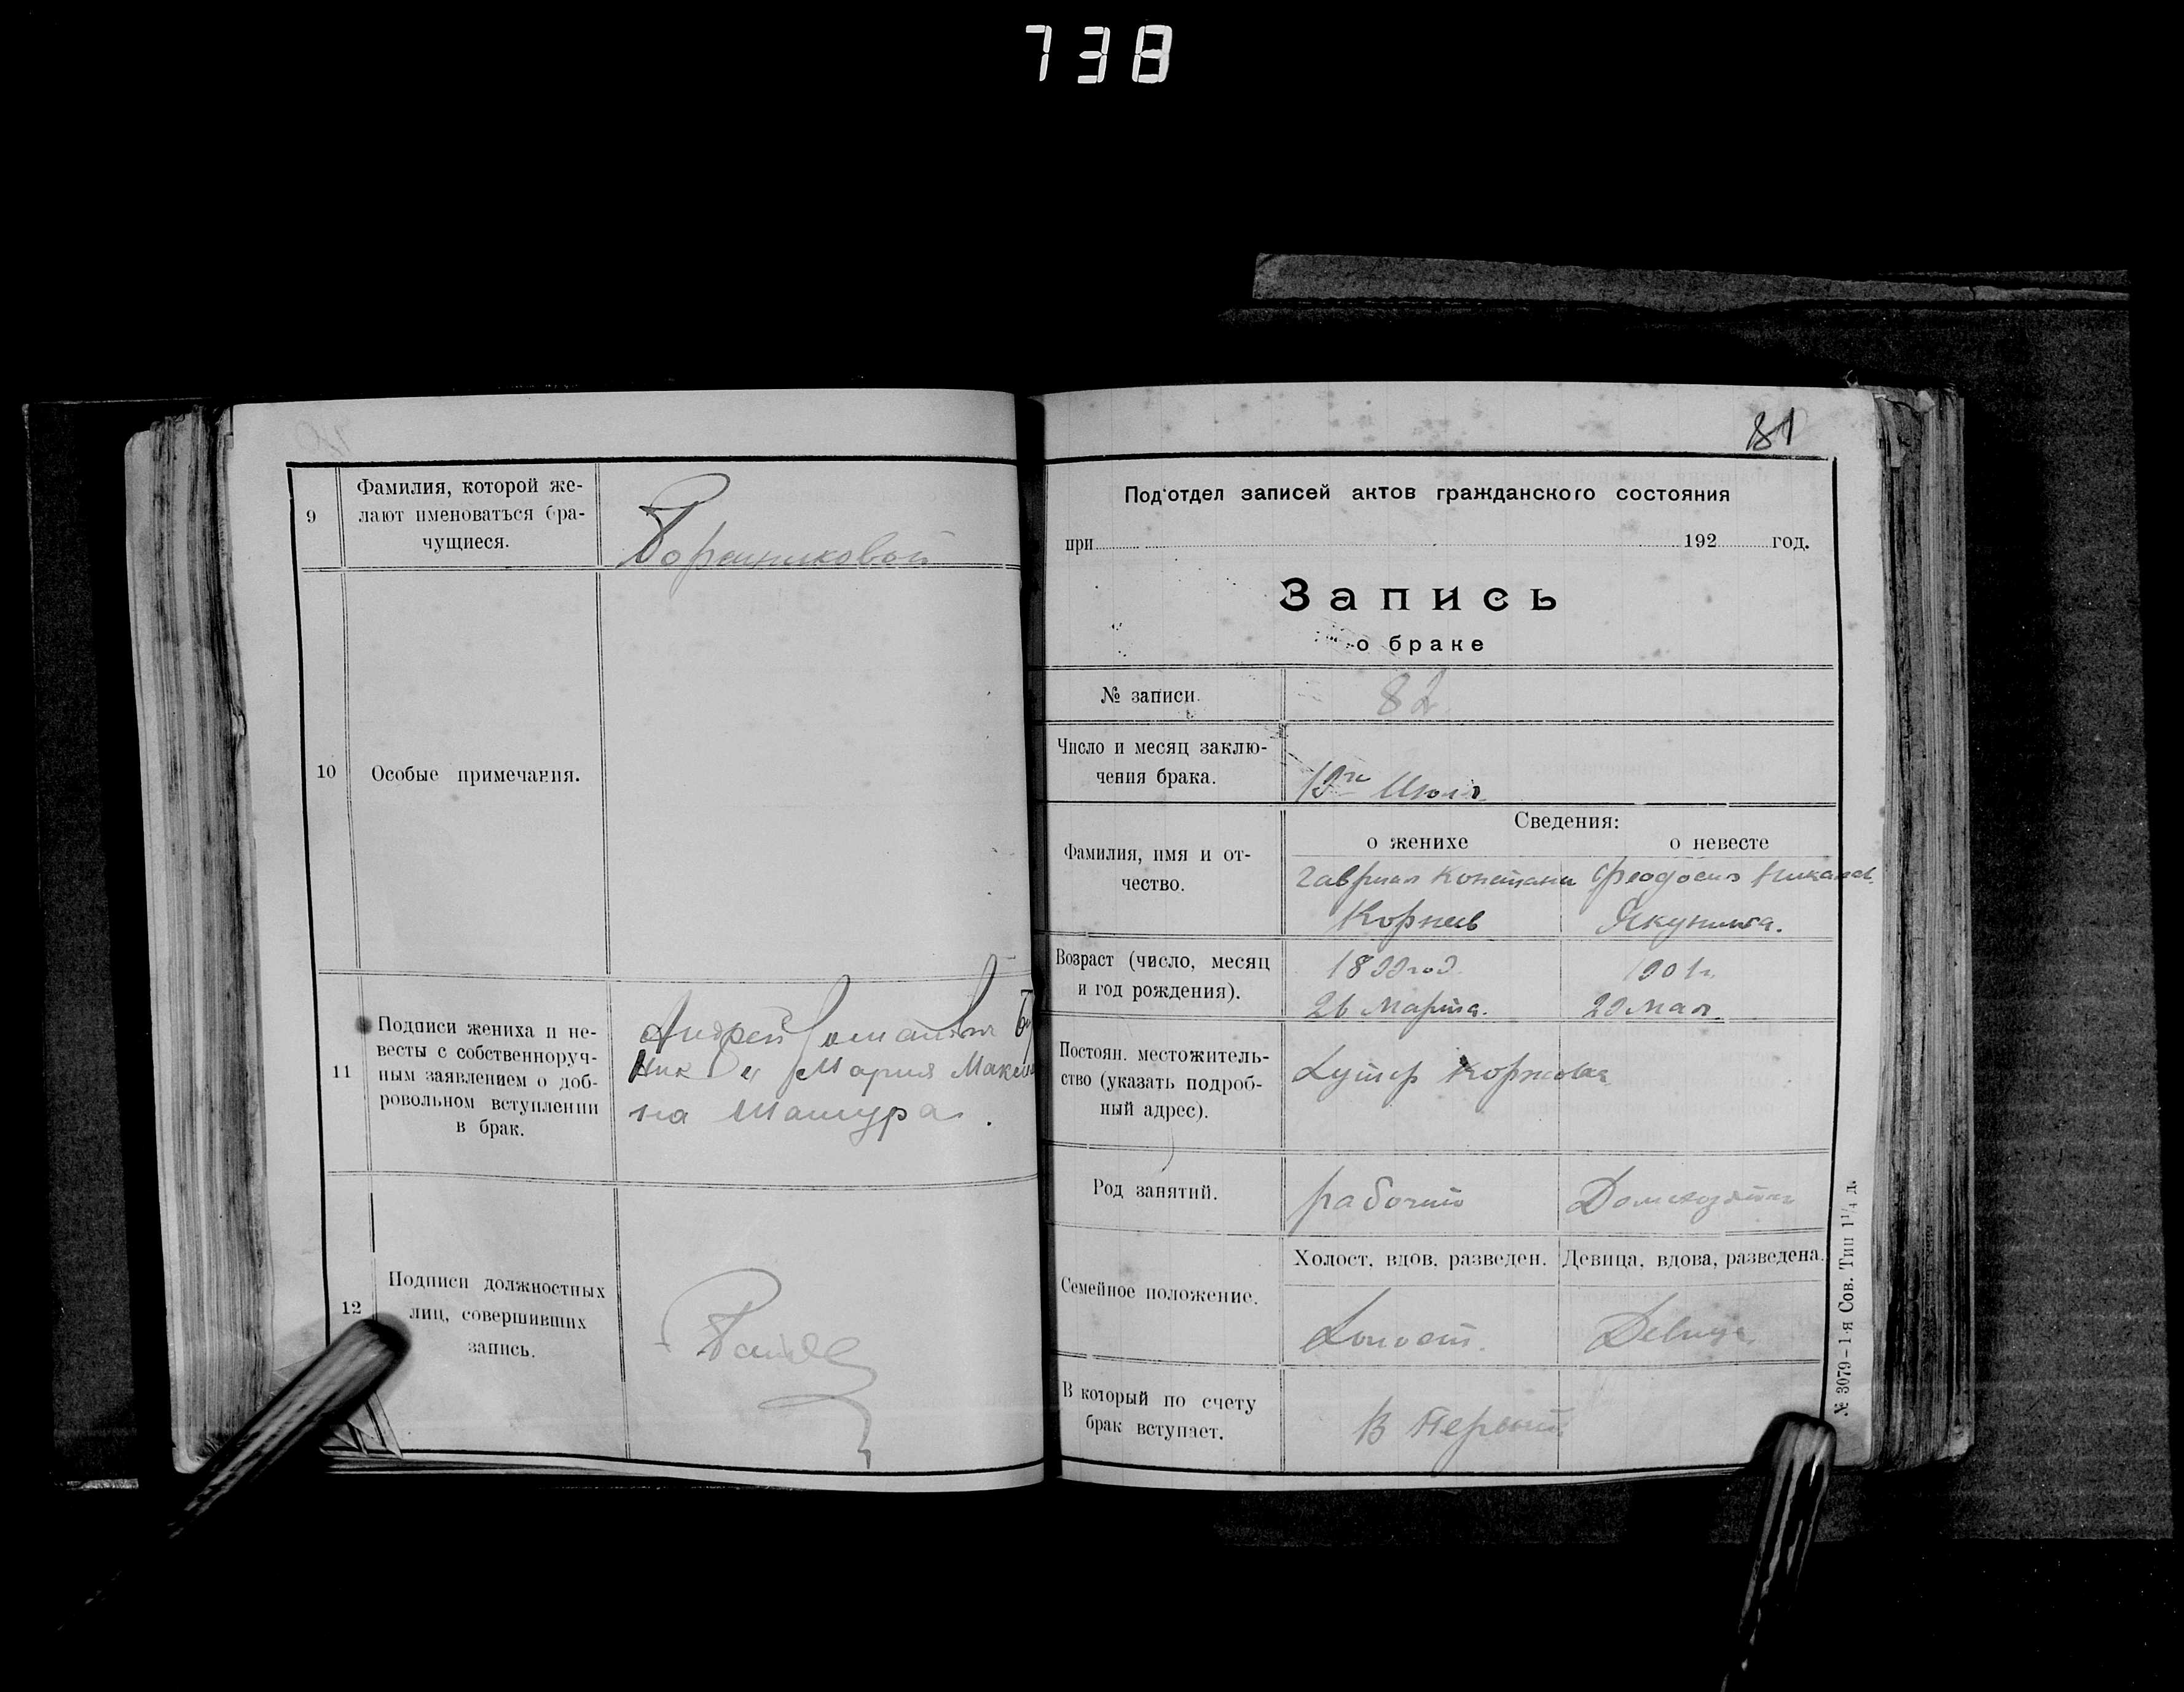 738
9
Фамилия, которой же-
лают именоваться бра-
чущиеся.
10
Особые примечания.
11
Подписи жениха и не-
весты с собственноруч-
ным заявлением о доб-
ровольном вступлении
в брак.
Андрей
Мария
на Шатура.
12
Подписи должностных
лиц, совершивших
запись.
81
Подотдел записей актов гражданского состояния
при 192 год.
Запись
о браке
№ записи.
82
Число и месяц заклю-
чения брака.
Июля
Сведения:
о женихе
о невесте
Фамилия, имя и от-
чество.
Гавриил Констант
Корнев
Феодосия
Якунина.
Возраст (число, месяц
и год рождения).
1899 год.
26 Марта.
1901 г.
20 Мая.
Постоян. местожитель-
ство (указать подроб-
ный адрес).
Хутор
Род занятий.
рабочий
Семейное положение.
Холост, вдов, разведен.
Девица, вдова, разведена.
Холост.
Девица
В который по счету
брак вступает.
В Первый
№ 3079–1-я Сов. Тип 1¹/₄ д.